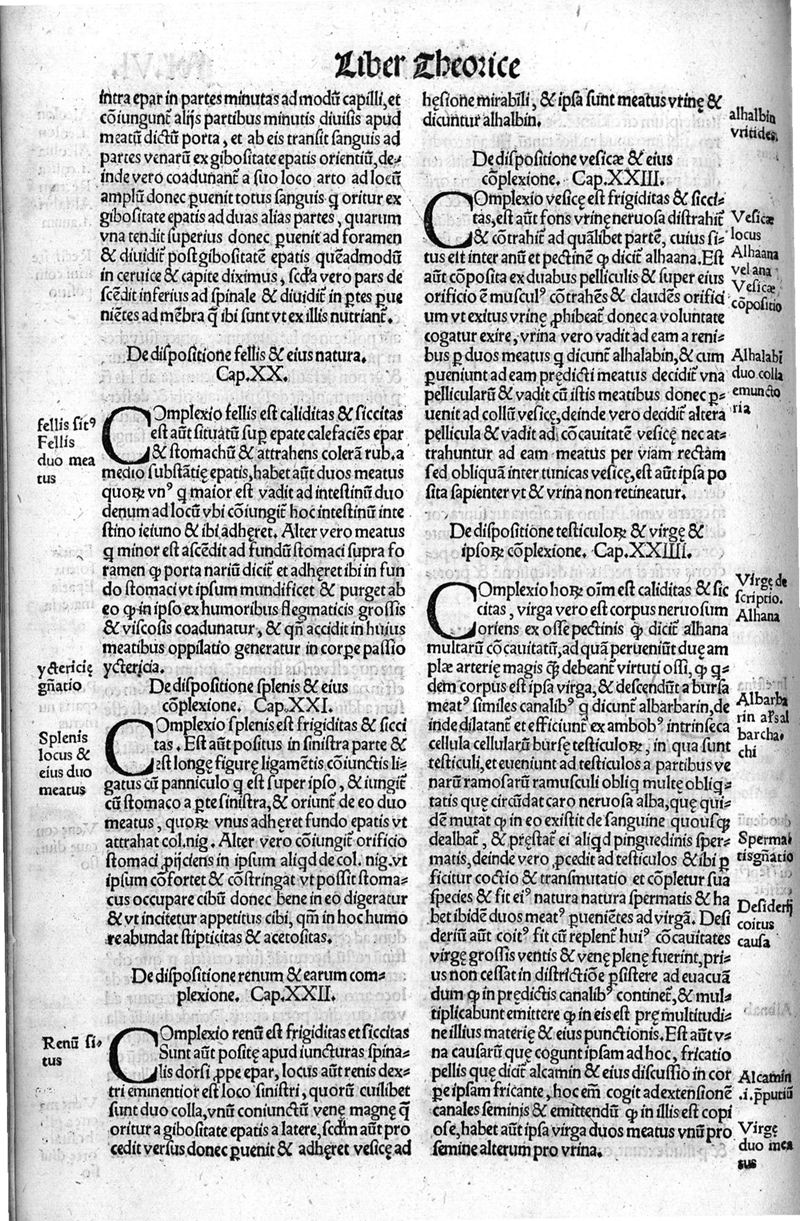 Liber Theorice
intra epar in partes minutas ad modū capilli, et
cōiungunt̄ alijs partibus minutis diuisis apud
meatū dictū porta, et ab eis transit sanguis ad
partes venarū ex gibositate epatis orientiū, de-
inde vero coadunant̄ a suo loco arto ad locū
amplū donec ꝑuenit totus sanguis q̄ oritur ex
gibositate epatis ad duas alias partes, quarum
vna tendit superius donec ꝑuenit ad foramen
& diuidit̄ post gibositatē epatis quēadmodū
in ceruice & capite diximus, scd̄a vero pars de
scēdit inferius ad spinale & diuidit̄ in ꝑtes ꝑue
niētes ad mēbra q̄ ibi sunt vt ex illis nutriant̄.
De dispositione fellis & eius natura.
Cap.XX.
fellis sitꝰ
Fellis
duo mea
tus
COmplexio fellis est caliditas & siccitas
est aūt situatū sup̄ epate calefaciēs epar
& stomachū & attrahens colerā rub. a
medio substātię epatis, habet aūt duos meatus
quoꝝ vnꝰ q̄ maior est vadit ad intestinū duo
denum ad locū vbi cōiungit̄ hoc intestinū inte
stino ieiuno & ibi adhęret. Alter vero meatus
q̄ minor est ascēdit ad fundū stomaci supra fo
ramen ꝙ porta nariū dicit̄ et adhęret ibi in fun
do stomaci vt ipsum mundificet & purget ab
eo ꝙ in ipso ex humoribus flegmaticis grossis
& viscosis coadunatur, & qn̄ accidit in huius
meatibus oppilatio generatur in corꝑe passio
yctericia.
yctericię
gn̄atio
De dispositione splenis & eius
cōplexione. Cap.XXI.
Splenis
locus &
eius duo
meatus
COmplexio splenis est frigiditas & sicci
tas. Est aūt positus in sinistra parte &
est longę figurę ligamētis cōiunctis li-
gatus cū panniculo q̄ est super ipso, & iungit̄
cū stomaco a ꝑte sinistra, & oriunt̄ de eo duo
meatus, quoꝝ vnus adhęret fundo epatis vt
attrahat col.nig. Alter vero cōiungit̄ orificio
stomaci ꝓijciens in ipsum aliqd de col. nig. vt
ipsum cōfortet & cōstringat vt possit stoma-
cus occupare cibū donec bene in eo digeratur
& vt incitetur appetitus cibi, qm̄ in hoc humo
re abundat stipticitas & acetositas.
De dispositione renum & earum com-
plexione. Cap.XXII.
Renū si-
tus
COmplexio renū est frigiditas et siccitas
Sunt aūt positę apud iuncturas spina-
lis dorsi ꝓpe epar, locus aūt renis dex-
tri eminentior est loco sinistri, quorū cuilibet
sunt duo colla, vnū coniunctū venę magnę q̄
oritur a gibositate epatis a latere, scd̄m aūt pro
cedit versus donec ꝑuenit & adhęret vesicę ad
hęsione mirabili, & ipsa sunt meatus vrinę &
dicuntur alhalbin.
alhalbin
vritides.
De dispositione vesicæ & eius
cōplexione. Cap.XXIII.
COmplexio vesicę est frigiditas & sicci-
tas, est aūt fons vrinę neruosa distrahit̄
& cōtrahit̄ ad quālibet partē, cuius si-
tus est inter anū et pectinē ꝙ dicit̄ alhaana. Est
aūt cōposita ex duabus pelliculis & super eius
orificio ē musculꝰ cōtrahēs & claudēs orifici
um vt exitus vrinę ꝓhibeat̄ donec a voluntate
cogatur exire, vrina vero vadit ad eam a reni-
bus ꝑ duos meatus q̄ dicunt̄ alhalabin, & cum
ꝑueniunt ad eam prędicti meatus decidit̄ vna
pellicularū & vadit cū istis meatibus donec ꝑ-
uenit ad collū vesicę, deinde vero decidit̄ altera
pellicula & vadit ad cōcauitatē vesicę nec at-
trahuntur ad eam meatus per viam rectam
sed obliquā inter tunicas vesicę, est aūt ipsa po
sita sapienter vt & vrina non retineatur.
Vesicæ
locus
Alhaana
vel ana
Vesicæ
cōpositio
Alhalabī
duo colla
emuncto
ria
De dispositione testiculoꝝ & virgę &
ipsoꝝ cōplexione. Cap.XXIIII.
COmplexio hoꝝ oīm est caliditas & sic
citas, virga vero est corpus neruosum
oriens ex osse pectinis ꝙ dicit̄ alhana
multarū cōcauitatū, ad quā perueniūt duę am
plæ arterię magis qꝫ debeant̄ virtuti ossi, ꝙ q̄-
dem corpus est ipsa virga, & descendūt a bursa
meatꝰ similes canalibꝰ q̄ dicunt̄ albarbarin, de
inde dilatant̄ et efficiunt̄ ex ambobꝰ intrinseca
cellula cellularū bursę testiculoꝝ, in qua sunt
testiculi, et eueniunt ad testiculos a partibus ve
narū ramosarū ramusculi obliq̄ multę obliq̄-
tatis quę circūdat caro neruosa alba, quę qui-
dē mutat ꝙ in eo existit de sanguine quousqꝫ
dealbat̄, & pręstat̄ ei aliqd pinguedinis sper-
matis, deinde vero ꝓcedit ad testiculos & ibi ꝑ
ficitur coctio & transmutatio et cōpletur sua
species & fit eiꝰ natura natura spermatis & ha
bet ibidē duos meatꝰ ꝑueniētes ad virgā. Desi
deriū aūt coitꝰ fit cū replent̄ huiꝰ cōcauitates
virgę grossis ventis & venę plenę fuerint, pri-
us non cessat in districtiōe ꝑsistere ad euacuā
dum ꝙ in prędictis canalibꝰ continet̄, & mul-
tiplicabunt emittere ꝙ in eis est pręmultitudi-
ne illius materię & eius punctionis. Est aūt v-
na causarū quę cogunt ipsam ad hoc, fricatio
pellis quę dicit̄ alcamin & eius discussio in cor
ꝑe ipsam fricante, hoc em̄ cogit ad extensionē
canales seminis & emittendū ꝙ in illis est copi
ose, habet aūt ipsa virga duos meatus vnū pro
semine alterum pro vrina.
Virgę de
scriptio.
Alhana
Albarba
rin
barcha-
chi
Sperma-
tis gn̄atio
Desiderij
coitus
causa
Alcamin
.i. p̄putiū
Virgę
duo mea
tus